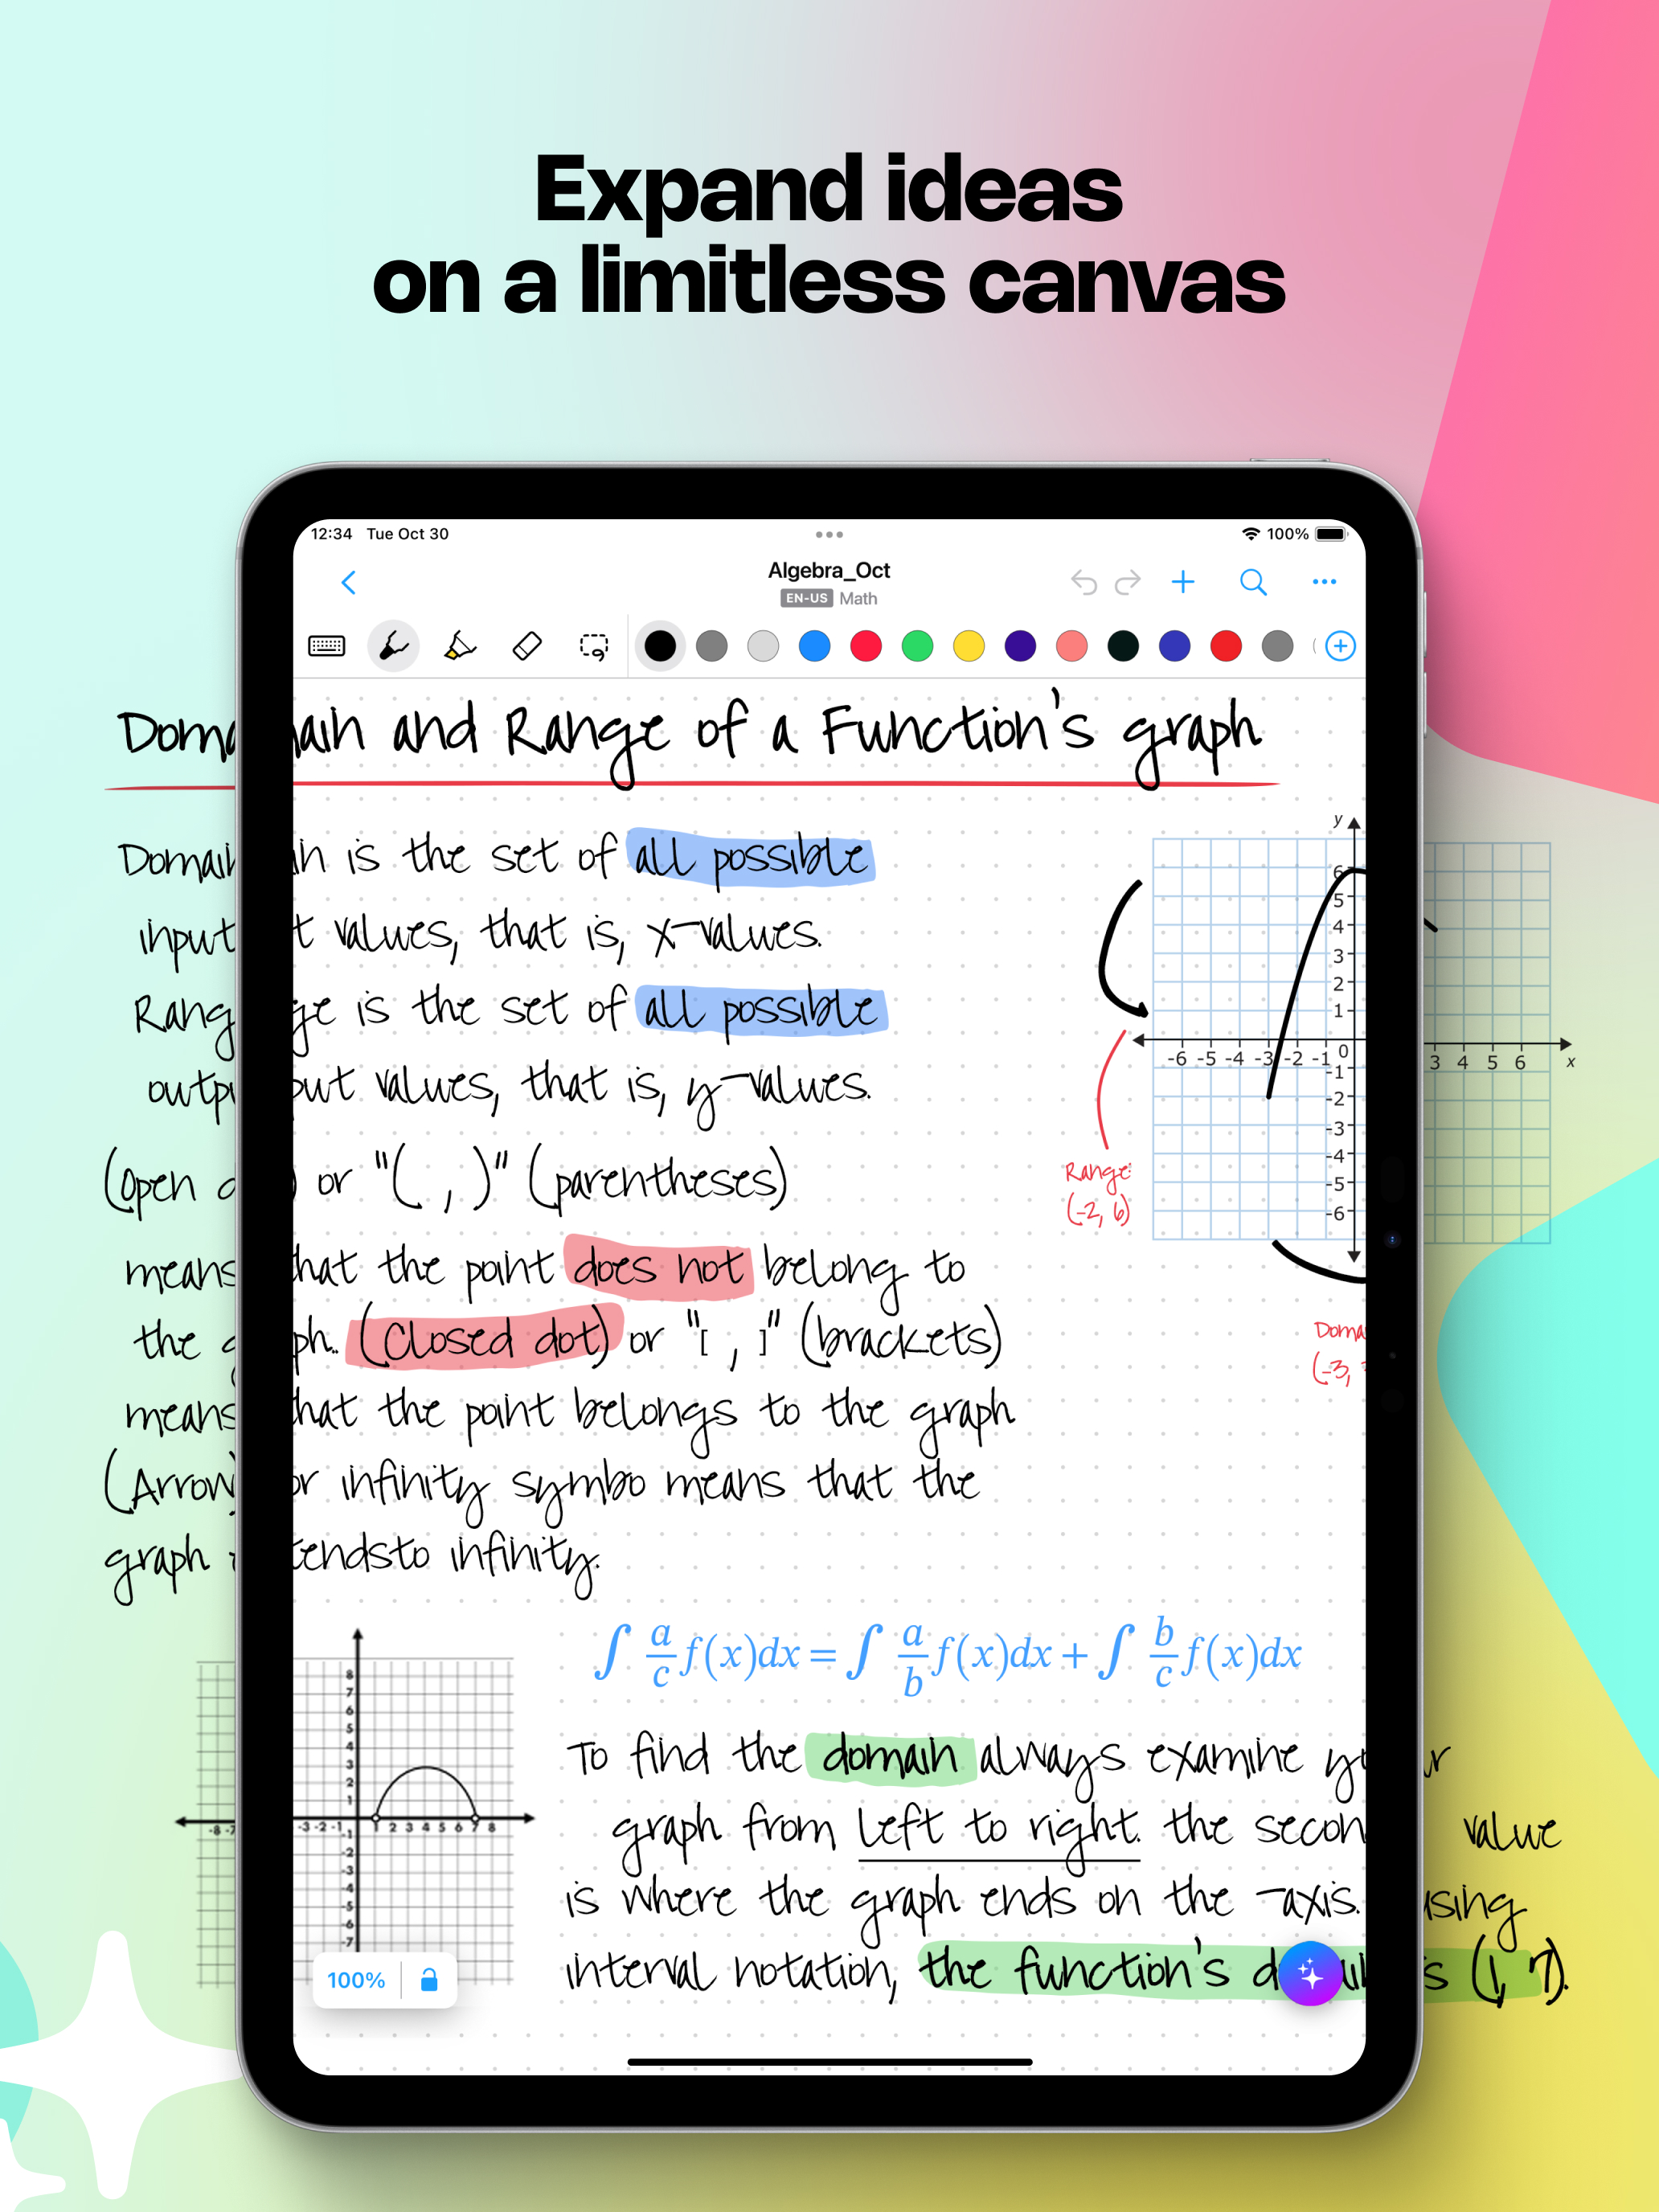 Expand ideas
on a limitless canvas
12:34 Tue Oct 30
100%
Algebra_Oct
EN-US Math
Domain and Range of a Function's graph
Domain is the set of all possible
input values, that is, x-values.
Range is the set of all possible
output values, that is, y-values.
(Open d ) or "( , )" (parentheses)
means that the point does not belong to
the graph. (Closed dot) or "[ , ]" (brackets)
means that the point belongs to the graph
(Arrow) or infinity symbo means that the
graph tendsto infinity.
y
6
5
4
3
2
1
-6 -5 -4 -3 -2 -1 0 3 4 5 6 x
-1
-2
-3
-4
-5
-6
Range:
(-2, 6)
Doma
(-3,
∫ a/c f(x)dx = ∫ a/b f(x)dx + ∫ b/c f(x)dx
8
7
6
5
4
3
2
1
-8 -7 -3 -2 -1 1 2 3 4 5 6 7 8
-1
-2
-3
-4
-5
-6
-7
To find the domain always examine your
graph from left to right. the secon value
is where the graph ends on the -axis. using
interval notation, the function's d ai s (1, 7).
100%